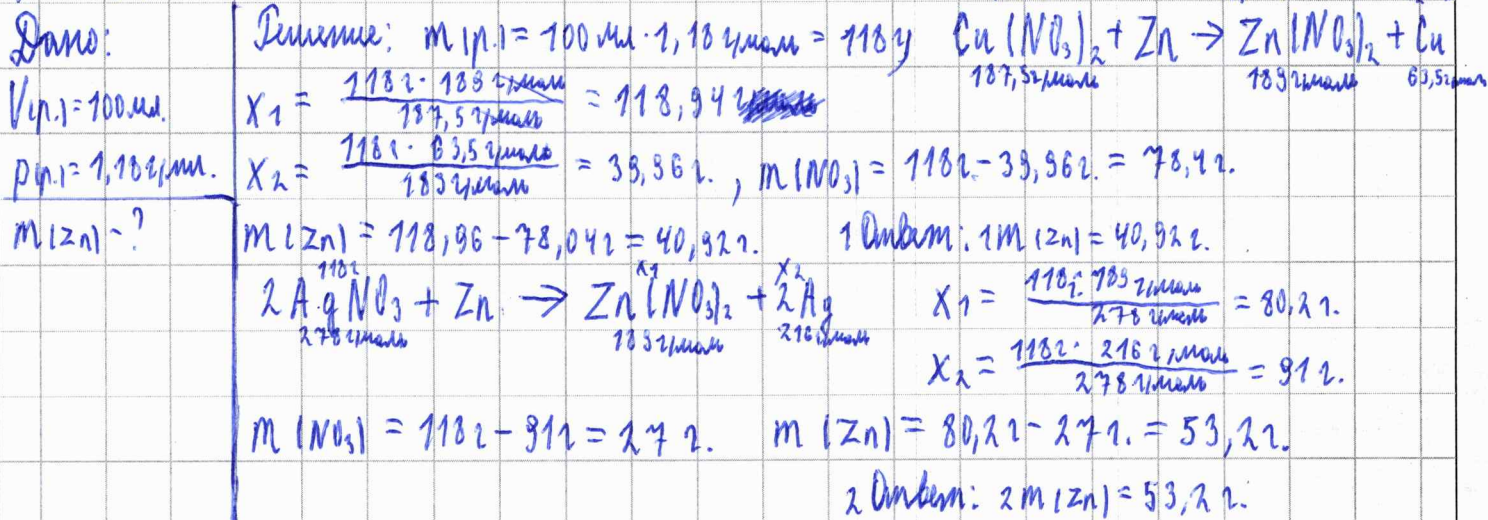 Дано:
V(р.)=100мл.
p(р.)=1,18г/мл.
m(Zn)-?
Решение: m(р.)=100мл·1,18г/моль=118г Cu(NO₃)₂+Zn→Zn(NO₃)₂+Cu
187,5г/моль 189г/моль 63,5г/моль
X₁= 118г·189г/моль / 187,5г/моль =118,94г
X₂= 118г·63,5г/моль / 189г/моль =39,96г., m(NO₃)=118г-39,96г.=78,4г.
m(Zn)=118,96-78,04г=40,92г. 1 Ответ: 1m(Zn)=40,92г.
118г X₁ X₂
2AgNO₃+Zn→Zn(NO₃)₂+2Ag X₁= 118г·189г/моль / 278г/моль =80,2г.
278г/моль 189г/моль 216г/моль
X₂= 118г·216г/моль / 278г/моль =91г.
m(NO₃)=118г-91г=27г. m(Zn)=80,2г-27г.=53,2г.
2 Ответ: 2m(Zn)=53,2г.